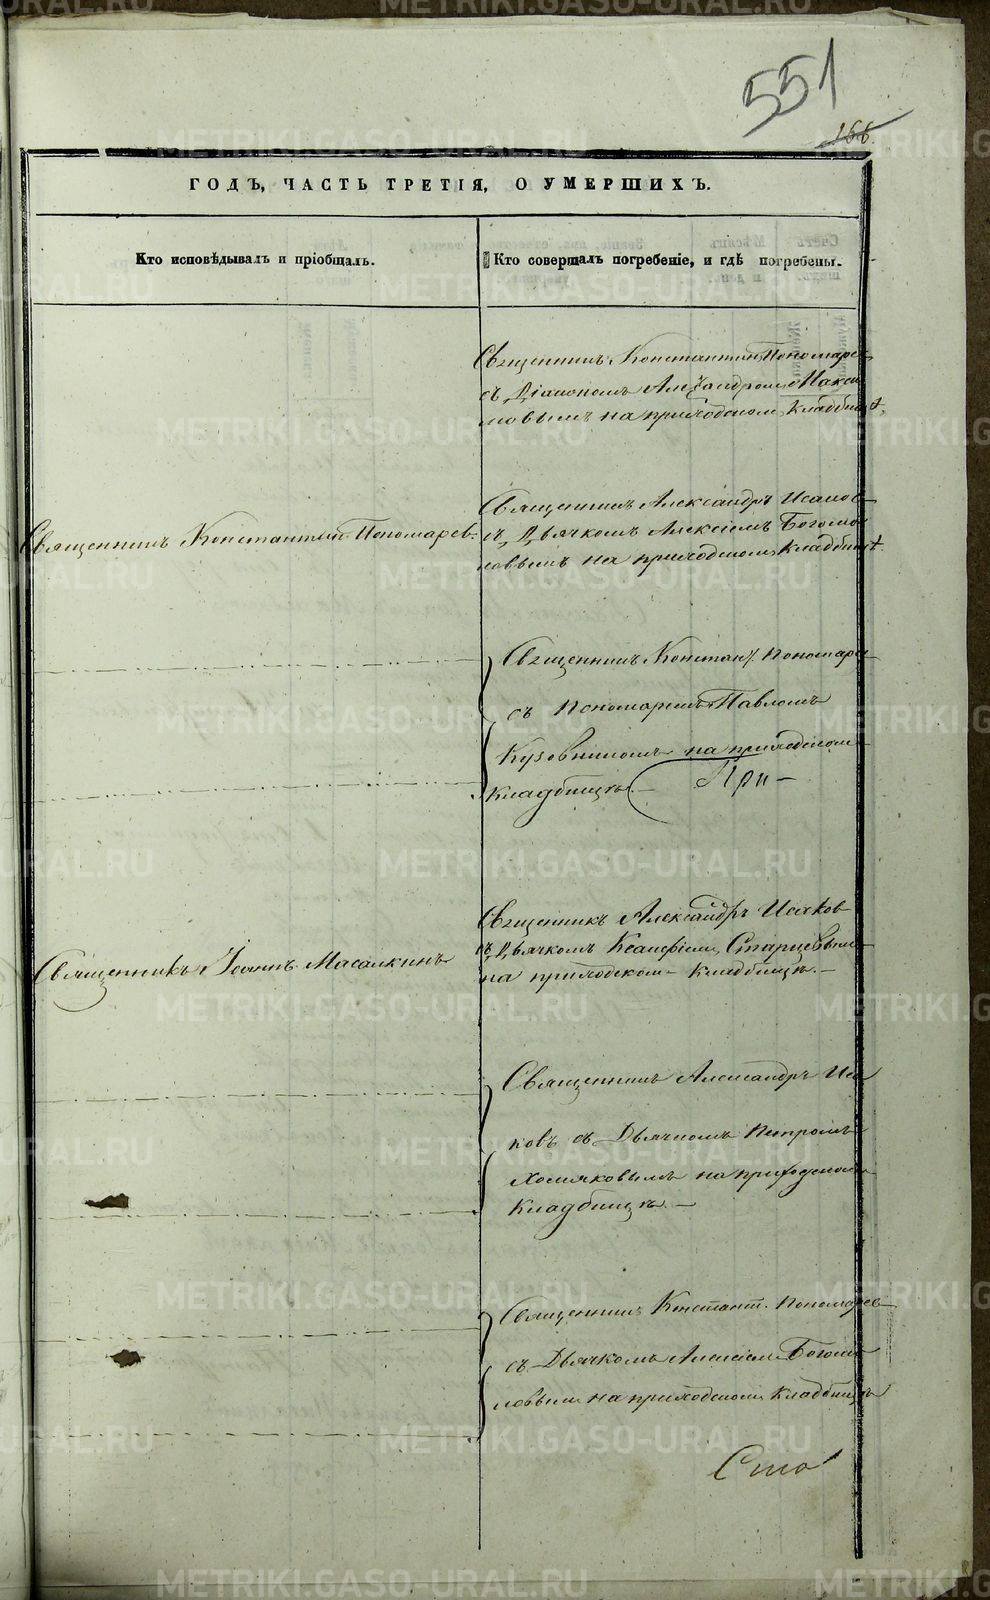 551
166.
ГОДЪ, ЧАСТЬ ТРЕТІЯ, О УМЕРШИХЪ.
Кто исповѣдывалъ и пріобщалъ.
Кто совершалъ погребеніе, и гдѣ погребены.
Священникъ Константинъ Пономарев
съ Діакономъ Александромъ Макси
мовымъ на приходскомъ кладбищѣ
Священникъ Константинъ Пономарев.
Священникъ Александръ Исаков
съ Дьячкомъ Алексіемъ Богомо
ловымъ на приходскомъ кладбищѣ
Священникъ Констан. Пономарев
съ Пономаремъ Павломъ
Кузовниковымъ на приходском
кладбищѣ. При
Священникъ Іоаннъ Масалкинъ
Священникъ Александръ Исаков
съ Дьячкомъ Старцевым
на приходском кладбищѣ.
Священникъ Александръ Иса
ковъ съ Дьячкомъ Петромъ
Хомяковымъ на приходском
кладбищѣ.
Священникъ Константи. Пономарев
съ Дьячкомъ Алексіем Богомо
ловым на приходском кладбищѣ
METRIKI.GASO-URAL.RU